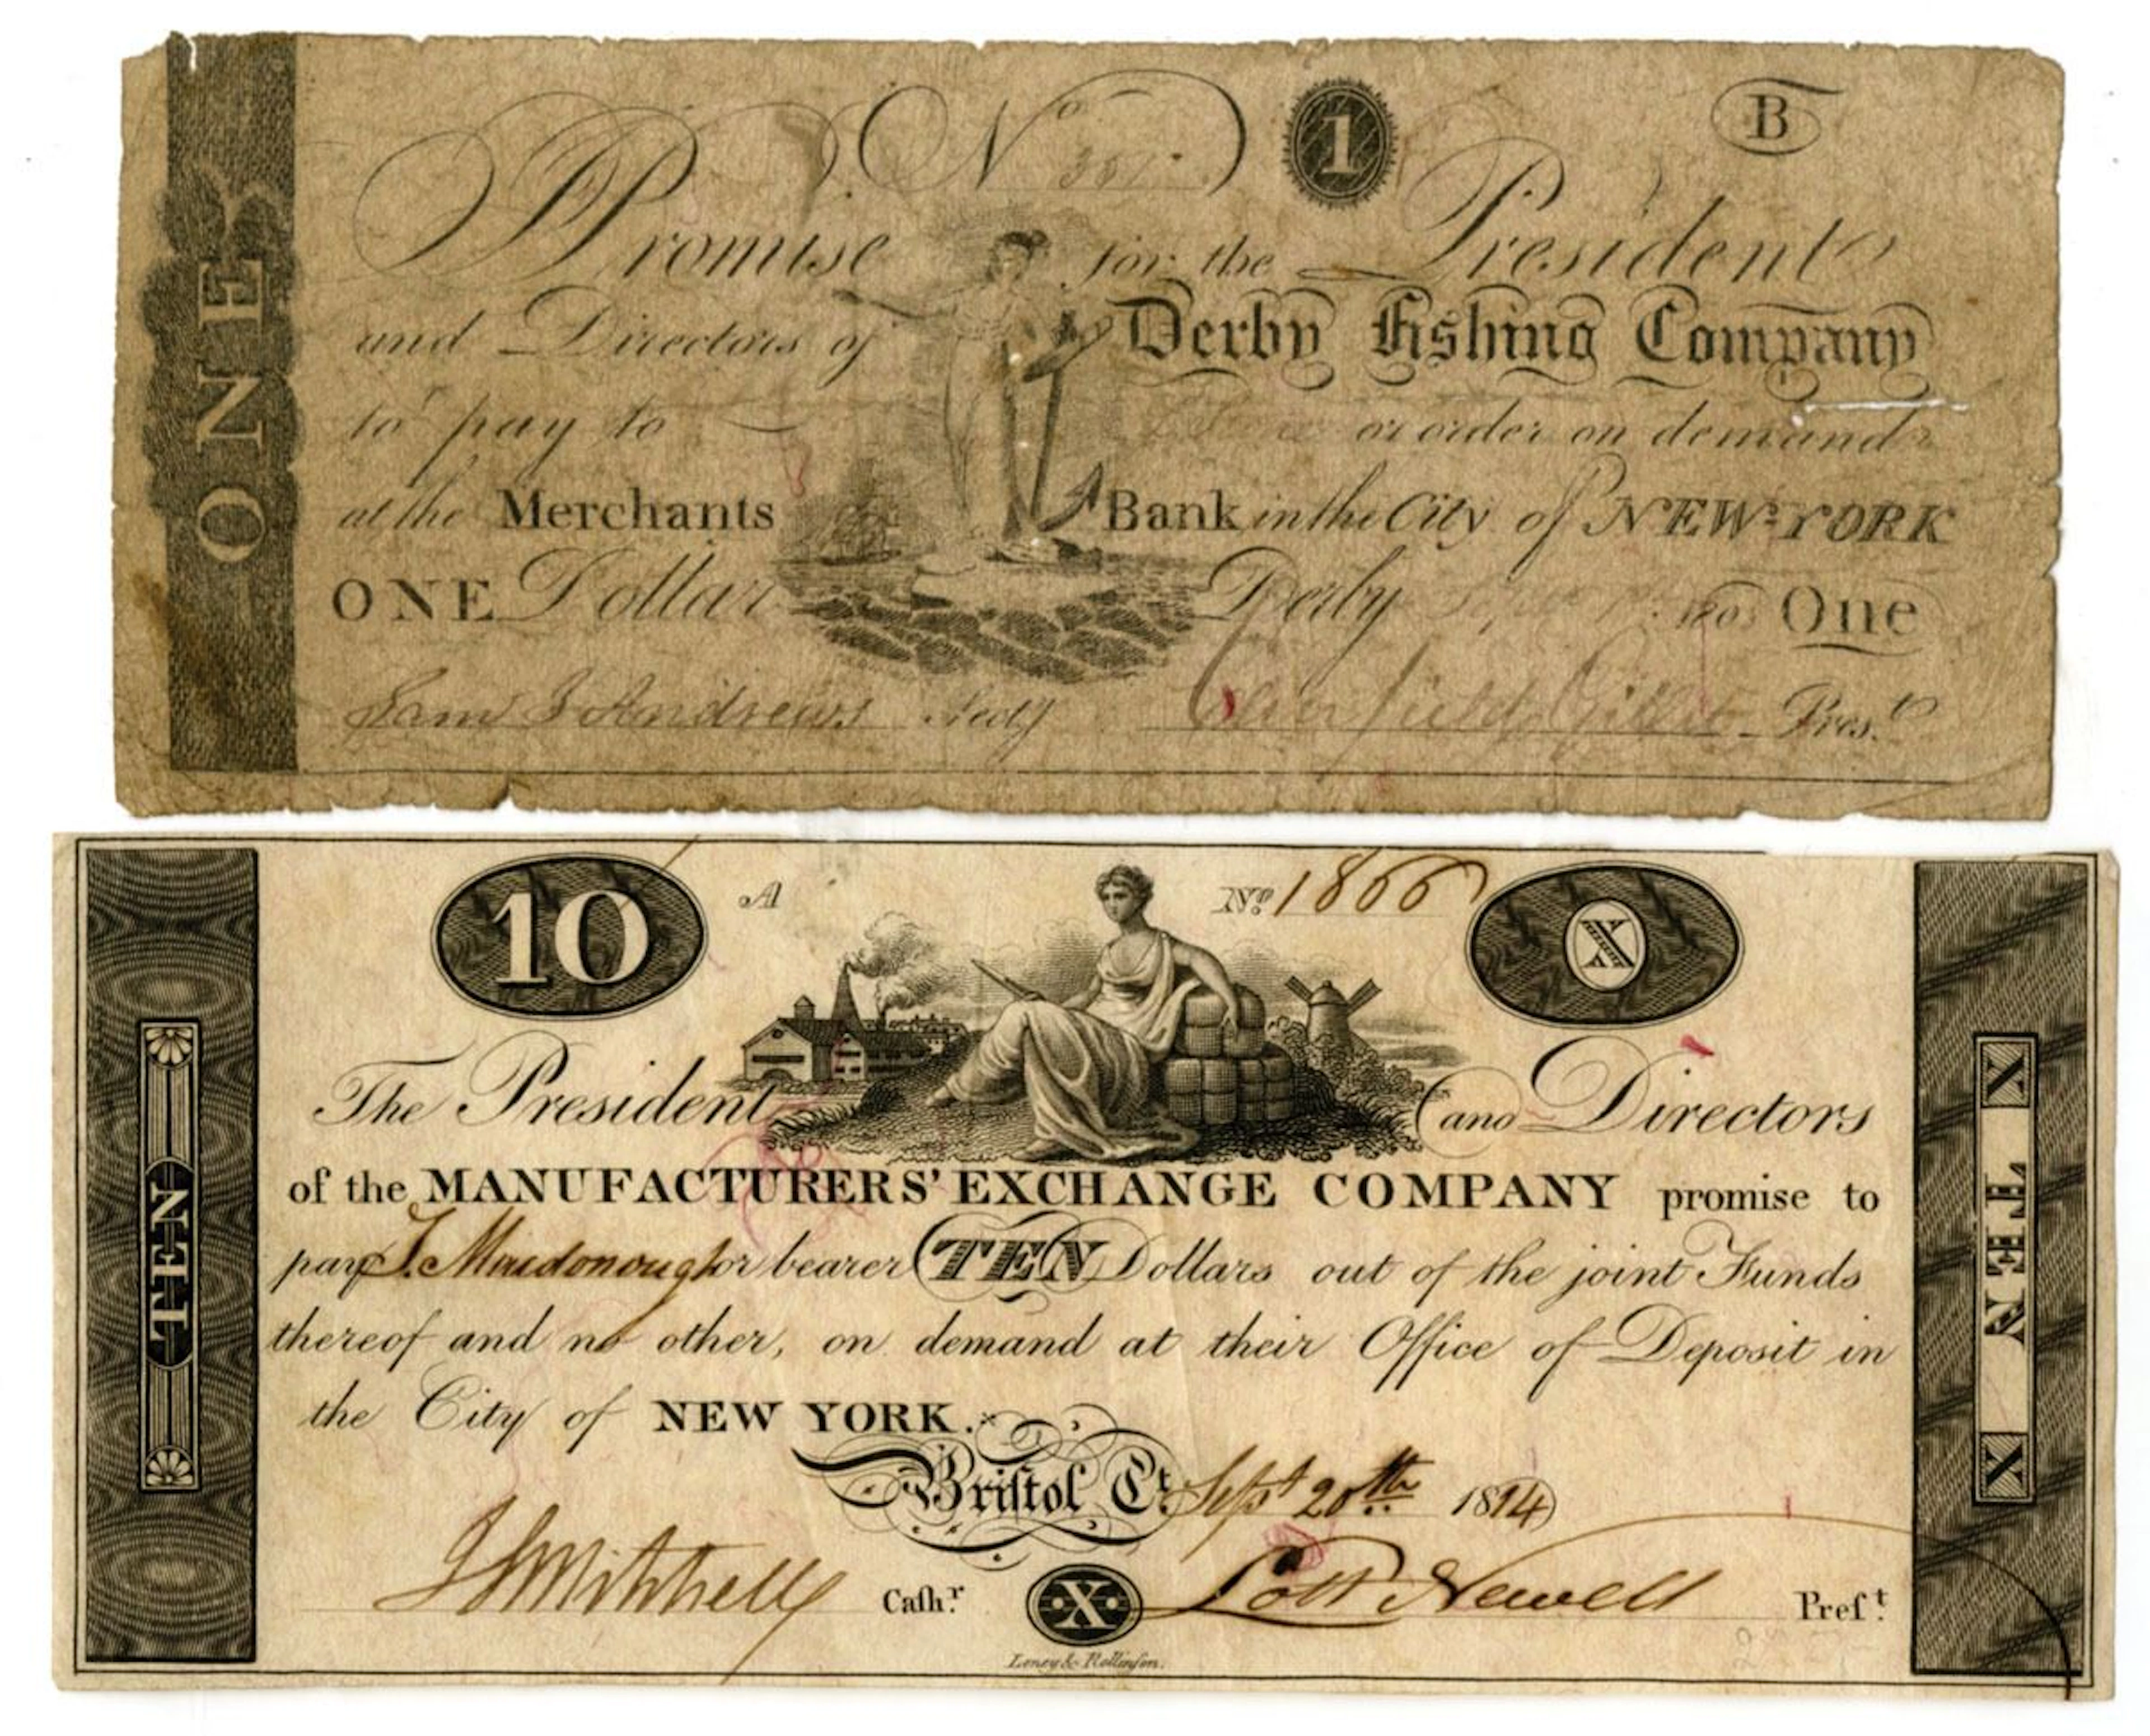 ONE
No 1 B
I Promise for the President
and Directors of Derby Fishing Company
to pay to or order on demand
at the Merchants Bank in the City of NEW-YORK
ONE Dollar Derby One
Sam J Andrews Secty Prest
10 A No. 1866 X
The President and Directors
of the MANUFACTURERS' EXCHANGE COMPANY promise to
pay or bearer TEN Dollars out of the joint Funds
thereof and no other, on demand at their Office of Deposit in
the City of NEW YORK.
Briſtol Ct. Sept 20th 1814
Caſhr. X Lott Newell Preſt.
Leney & Rollinſon.
TEN
X TEN X